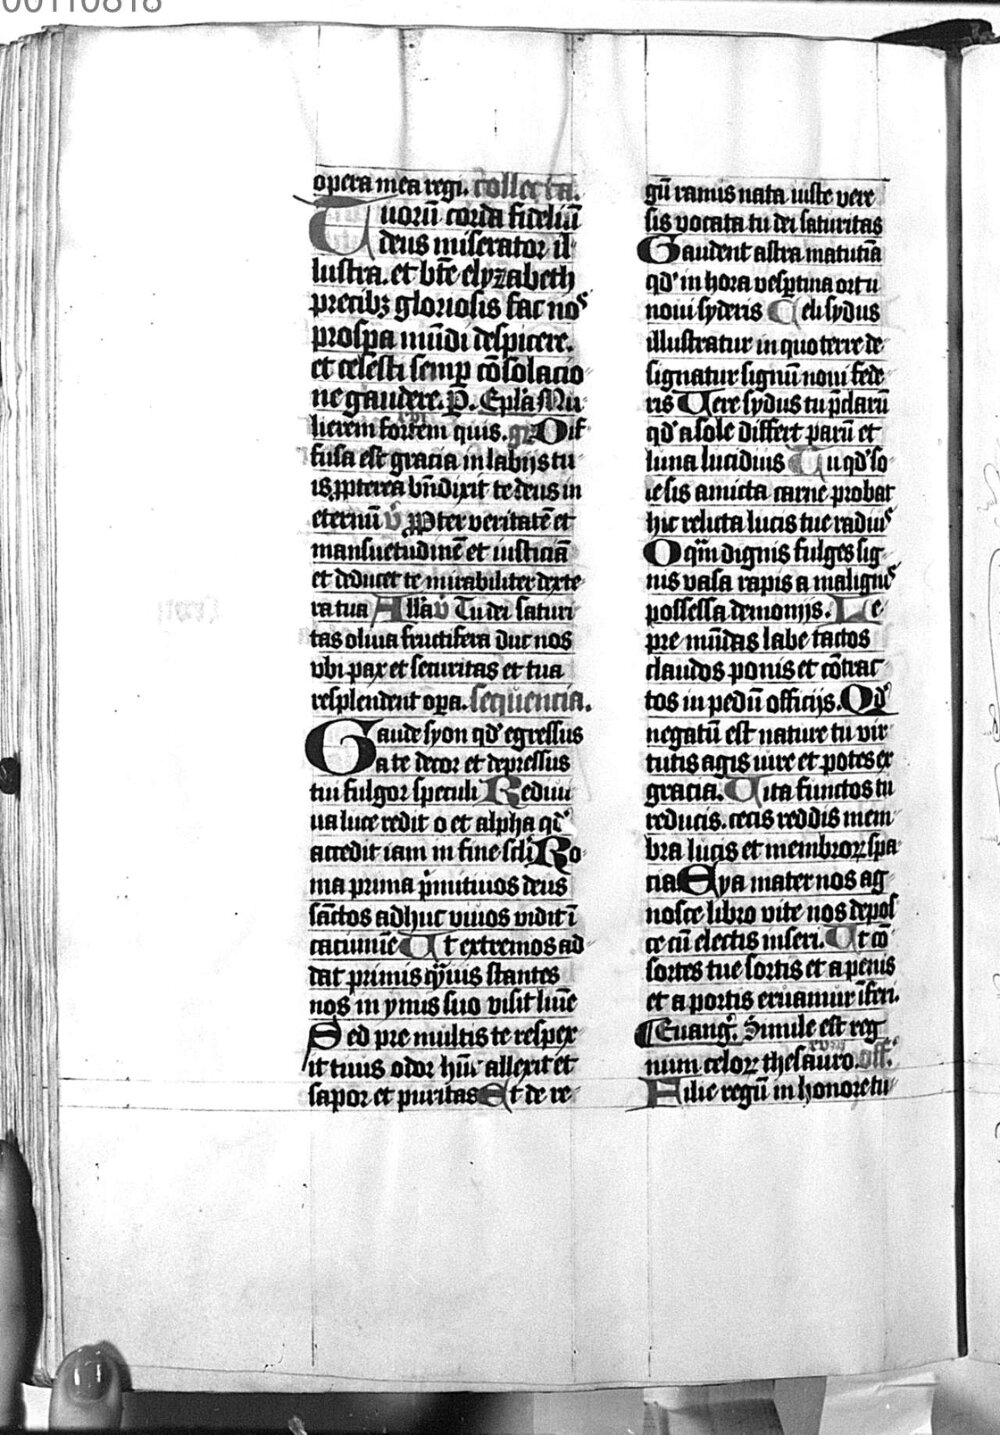 00110818
opera mea regi. collecta.
Tuorū corda fideliū
deus miserator il
lustra. et bt̄e elyzabeth
precibꝫ gloriosis fac noꝰ
prosꝑa mūdi despicere.
et celesti semꝑ cōsolacio
ne gaudere. P̄. Epl̄a Mu
lierem fortem quis. gͬ Dif
fusa est gracia in labijs tu
is ꝓpterea bn̄dixit te deus in
eternū v̄ Propter veritatē et
mansuetudinē et iusticiā
et deducet te mirabiliter dexte
ra tua All'a v̄ Tu dei saturi
tas oliua fructifera duc nos
vbi pax et securitas et tua
resplendent oꝑa. sequencia.
Gaude syon qd' egressus
a te decor et depressus
tui fulgor speculi Rediui
ua luce redit o et alpha qd'
accedit iam in fine scl̄i Ro
ma prima pͥmitiuos deus
sāctos adhuc viuos vidit ī
cacumīe Ut extremos ad
dat primis qͥuis stantes
nos in ymis suo visit lumīe
Sed pre multis te respex
it tuus odor hūc allexit et
sapor et puritas Et de re
gū ramis nata iuste vere
sis vocata tu dei saturitas
Gaudent astra matutīa
qd' in hora vesꝑtina ortu
noui syderis Celi sydus
illustratur in quo terre de
signatur signū noui fede
ris Uere sydus tu p̄clarū
qd' a sole differt parū et
luna lucidius Tu qd' so
le sis amicta carne probat
hic relicta lucis tue radiuꝰ
O qͣm dignis fulges sig
nis vasa rapis a malignꝰ
possessa demonijs. Le
pre mūdas labe tactos
claudos ponis et cōtrac
tos in pedū officijs. Qd'
negatū est nature tu vir
tutis agis iure et potes ex
gracia. Uita functos tu
reducis. cecis reddis mem
bra lucis et membroꝝ spa
cia Eya mater nos ag
nosce libro vite nos depos
ce cū electis inseri. Ut cō
sortes tue sortis et a penis
et a portis eruamur īferi.
Euangͬ. Simile est reg
num celoꝝ thesauro. off.
Filie regū in honore tu